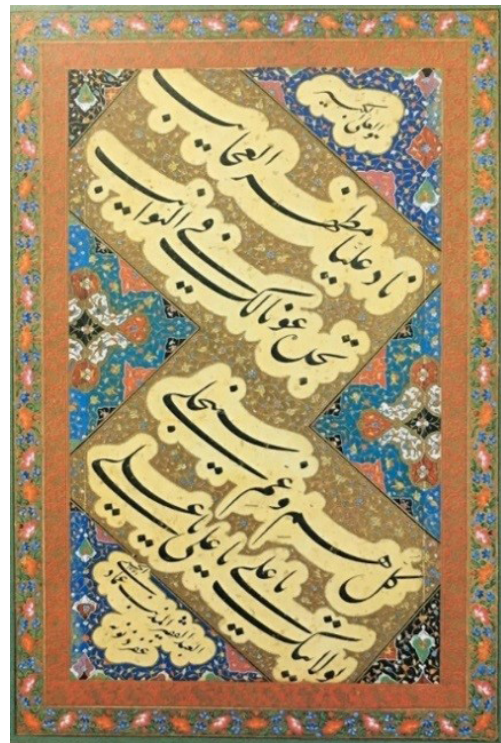 هو العلی الکبیر
ناد علیًا مظهر العجایب
تجده عونا لک فی النوایب
کل هم و غم سینجلی
بولایتک یا علی یا علی یا علی
العبد المذنب عماد الحسنی
غفر ذنوبه